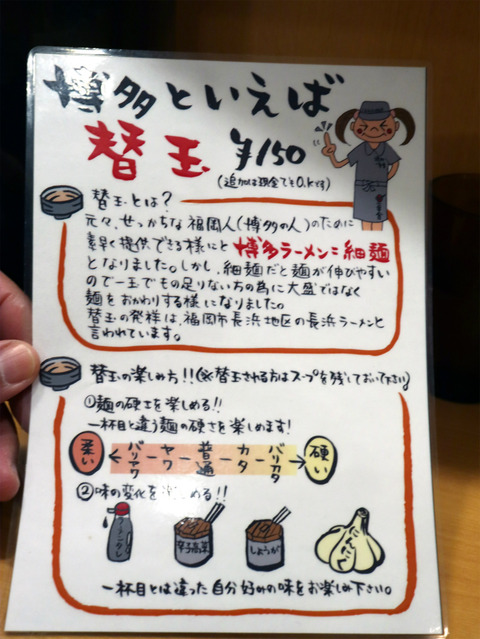 博多といえば
替玉 ¥150
(追加は現金でもO.Kです)
替玉とは?
元々、せっかちな福岡人(博多の人)のために
素早く提供できる様にと博多ラーメン=細麺
となりました。しかし、細麺だと麺が伸びやすい
ので一玉でもの足りない方の為に大盛ではなく
麺をおかわりする様になりました。
替玉の発祥は、福岡市長浜地区の長浜ラーメンと
言われています。
替玉の楽しみ方!!(※替玉される方はスープを残しておいて下さい)
①麺の硬さを楽しめる!!
一杯目と違う麺の硬さを楽しめます!
柔い ← バリヤワ ヤワ 普通 カタ バリカタ → 硬い
②味の変化を楽しめる!!
ラーメンタレ 辛子高菜 しょうが にんにく
一杯目とは違った自分好みの味をお楽しみ下さい。